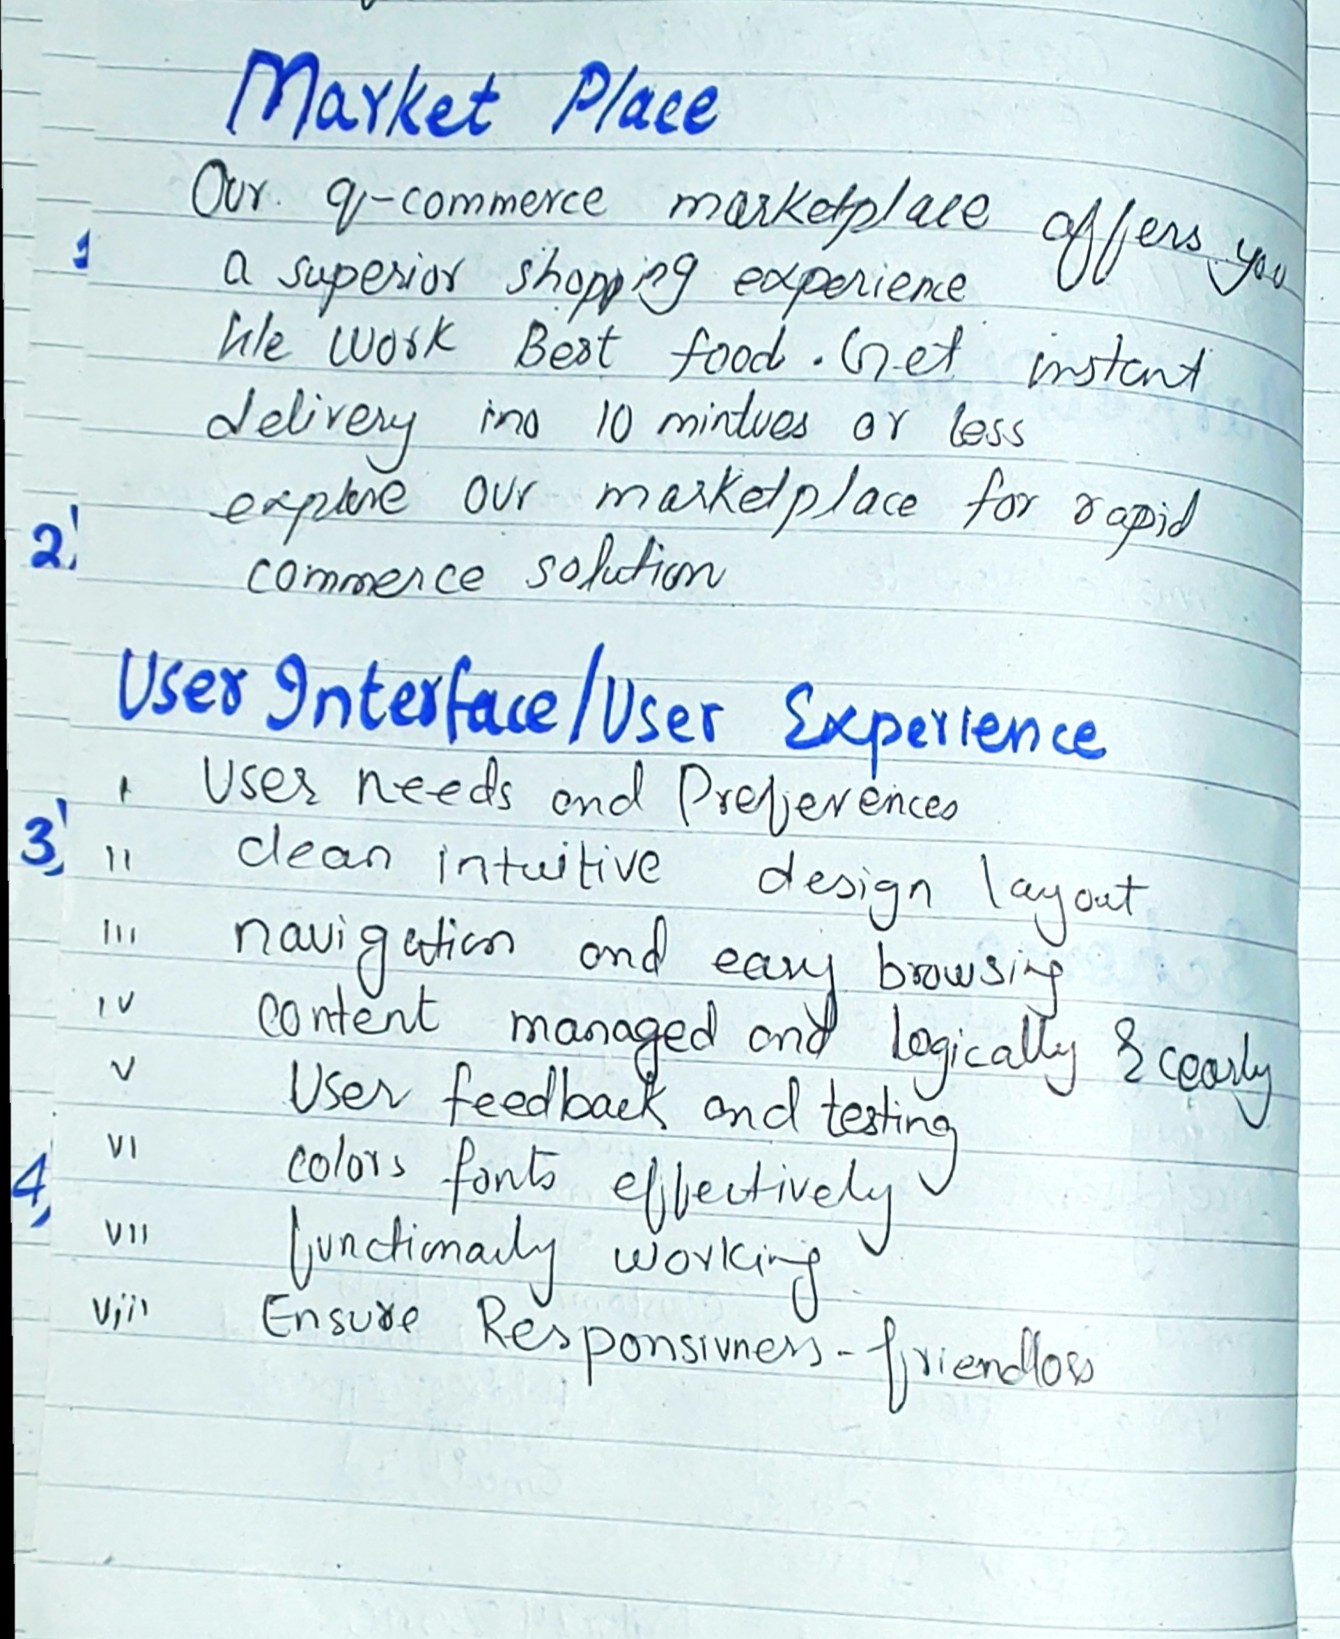 Market Place
Our q-commerce marketplace offers you
1 a superior shopping experience
We work Best food. Get instant
delivery ino 10 mintues or less
explore our marketplace for rapid
2, commerce solution
User Interface/User Experience
i User needs and Preferences
3, ii clean intuitive design layout
iii navigation and easy browsing
iv content managed and logically & cearly
v User feedback and testing
vi colors fonts effectively
4, vii functionally working
viii Ensure Responsivness-friendloss